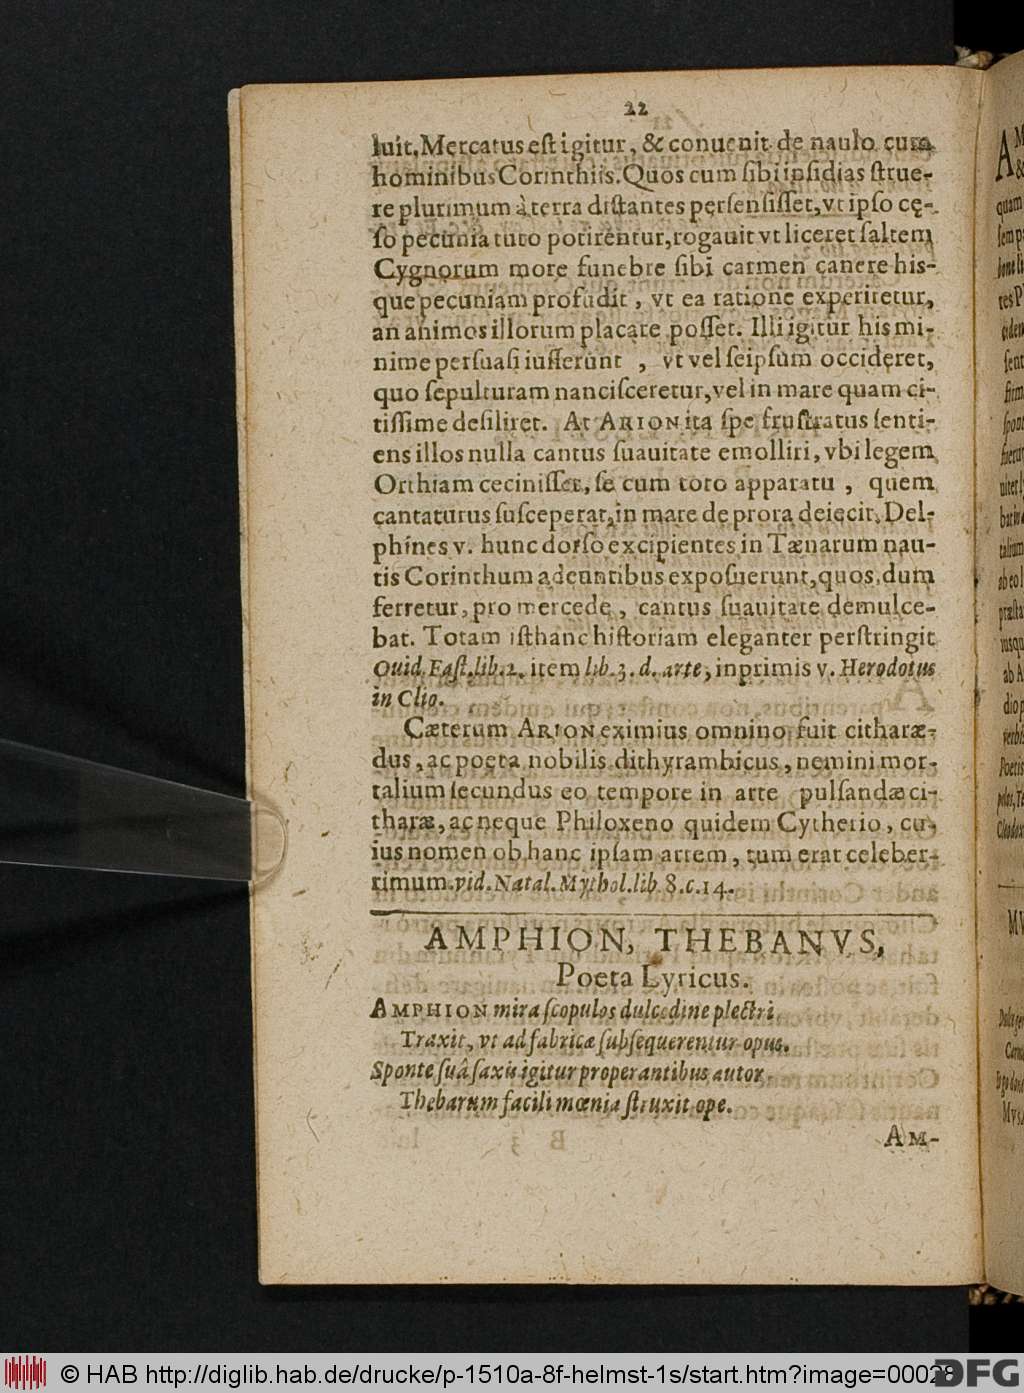 22
luit. Mercatus est igitur, & conuenit de naulo cum
hominibus Corinthiis. Quos cum sibi insidias strue-
re plurimum à terra distantes persensisset, vt ipso cę-
so pecunia tuto potirentur, rogauit vt liceret saltem
Cygnorum more funebre sibi carmen canere his-
que pecuniam profudit, vt ea ratione experiretur,
an animos illorum placare posset. Illi igitur his mi-
nime persuasi iusserunt, vt vel seipsum occideret,
quo sepulturam nancisceretur, vel in mare quam ci-
tissime desiliret. At ARION ita spe frustratus senti-
ens illos nulla cantus suauitate emolliri, vbi legem
Orthiam cecinisset, se cum toto apparatu, quem
cantaturus susceperat, in mare de prora deiecit. Del-
phines v. hunc dorso excipientes in Tænarum nau-
tis Corinthum adeuntibus exposuerunt, quos, dum
ferretur, pro mercede, cantus suauitate demulce-
bat. Totam isthanc historiam eleganter perstringit
Ouid. Fast. lib. 2. item lib. 3. d. arte, inprimis v. Herodotus
in Clio.
Cæterum ARION eximius omnino fuit citharæ-
dus, ac poeta nobilis dithyrambicus, nemini mor-
talium secundus eo tempore in arte pulsandæ ci-
tharæ, ac neque Philoxeno quidem Cytherio, cu-
ius nomen ob hanc ipsam artem, tum erat celeber-
rimum. vid. Natal. Mythol. lib. 8. c. 14.
AMPHION, THEBANVS,
Poeta Lyricus.
AMPHION mira scopulos dulcedine plectri
Traxit, vt ad fabricæ subsequerentur opus.
Sponte suâ saxis igitur properantibus autor
Thebarum facili mœnia struxit ope.
AM-
© HAB http://diglib.hab.de/drucke/p-1510a-8f-helmst-1s/start.htm?image=00028
DFG